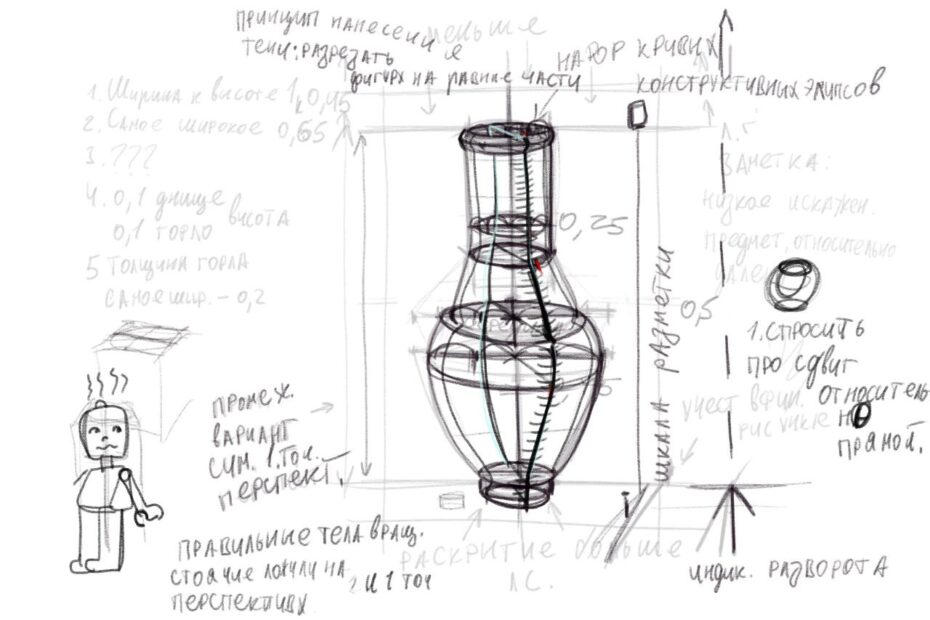 ПРИНЦИП НАНЕСЕНИЯ
ТЕНИ: РАЗРЕЗАТЬ
ФИГУРУ НА РАВНЫЕ ЧАСТИ
меньше
НАБОР КРИВЫХ
КОНСТРУКТИВНЫХ ЭЛИПСОВ
1. Ширина к высоте 1 к 0,45
2. Самое широкое 0,65
3. ???
4. 0,1 днище
0,1 горло
высота
5 Толщина горла
Самое шир. – 0,2
0,25
0,5
Л.Г
ЗАМЕТКА:
низкое искажен.
предмет, относительно
ШКАЛА РАЗМЕТКИ
1. СПРОСИТЬ
ПРО СДВИГ
ОТНОСИТЕЛЬ
НО
ПРЯМОЙ.
УЧЕСТ В ФИН.
РИСУНКЕ
ПРОМЕЖ.
ВАРИАНТ
СИМ. 1. ТОЧ.
ПЕРСПЕКТ.
ПРАВИЛЬНЫЕ ТЕЛА ВРАЩ.
СТОЯЧИЕ
НА 2 И 1 ТОЧ
ПЕРСПЕКТИВУ
РАСКРИТИЕ больше
ЛС.
ИНДИК. РАЗВОРОТА